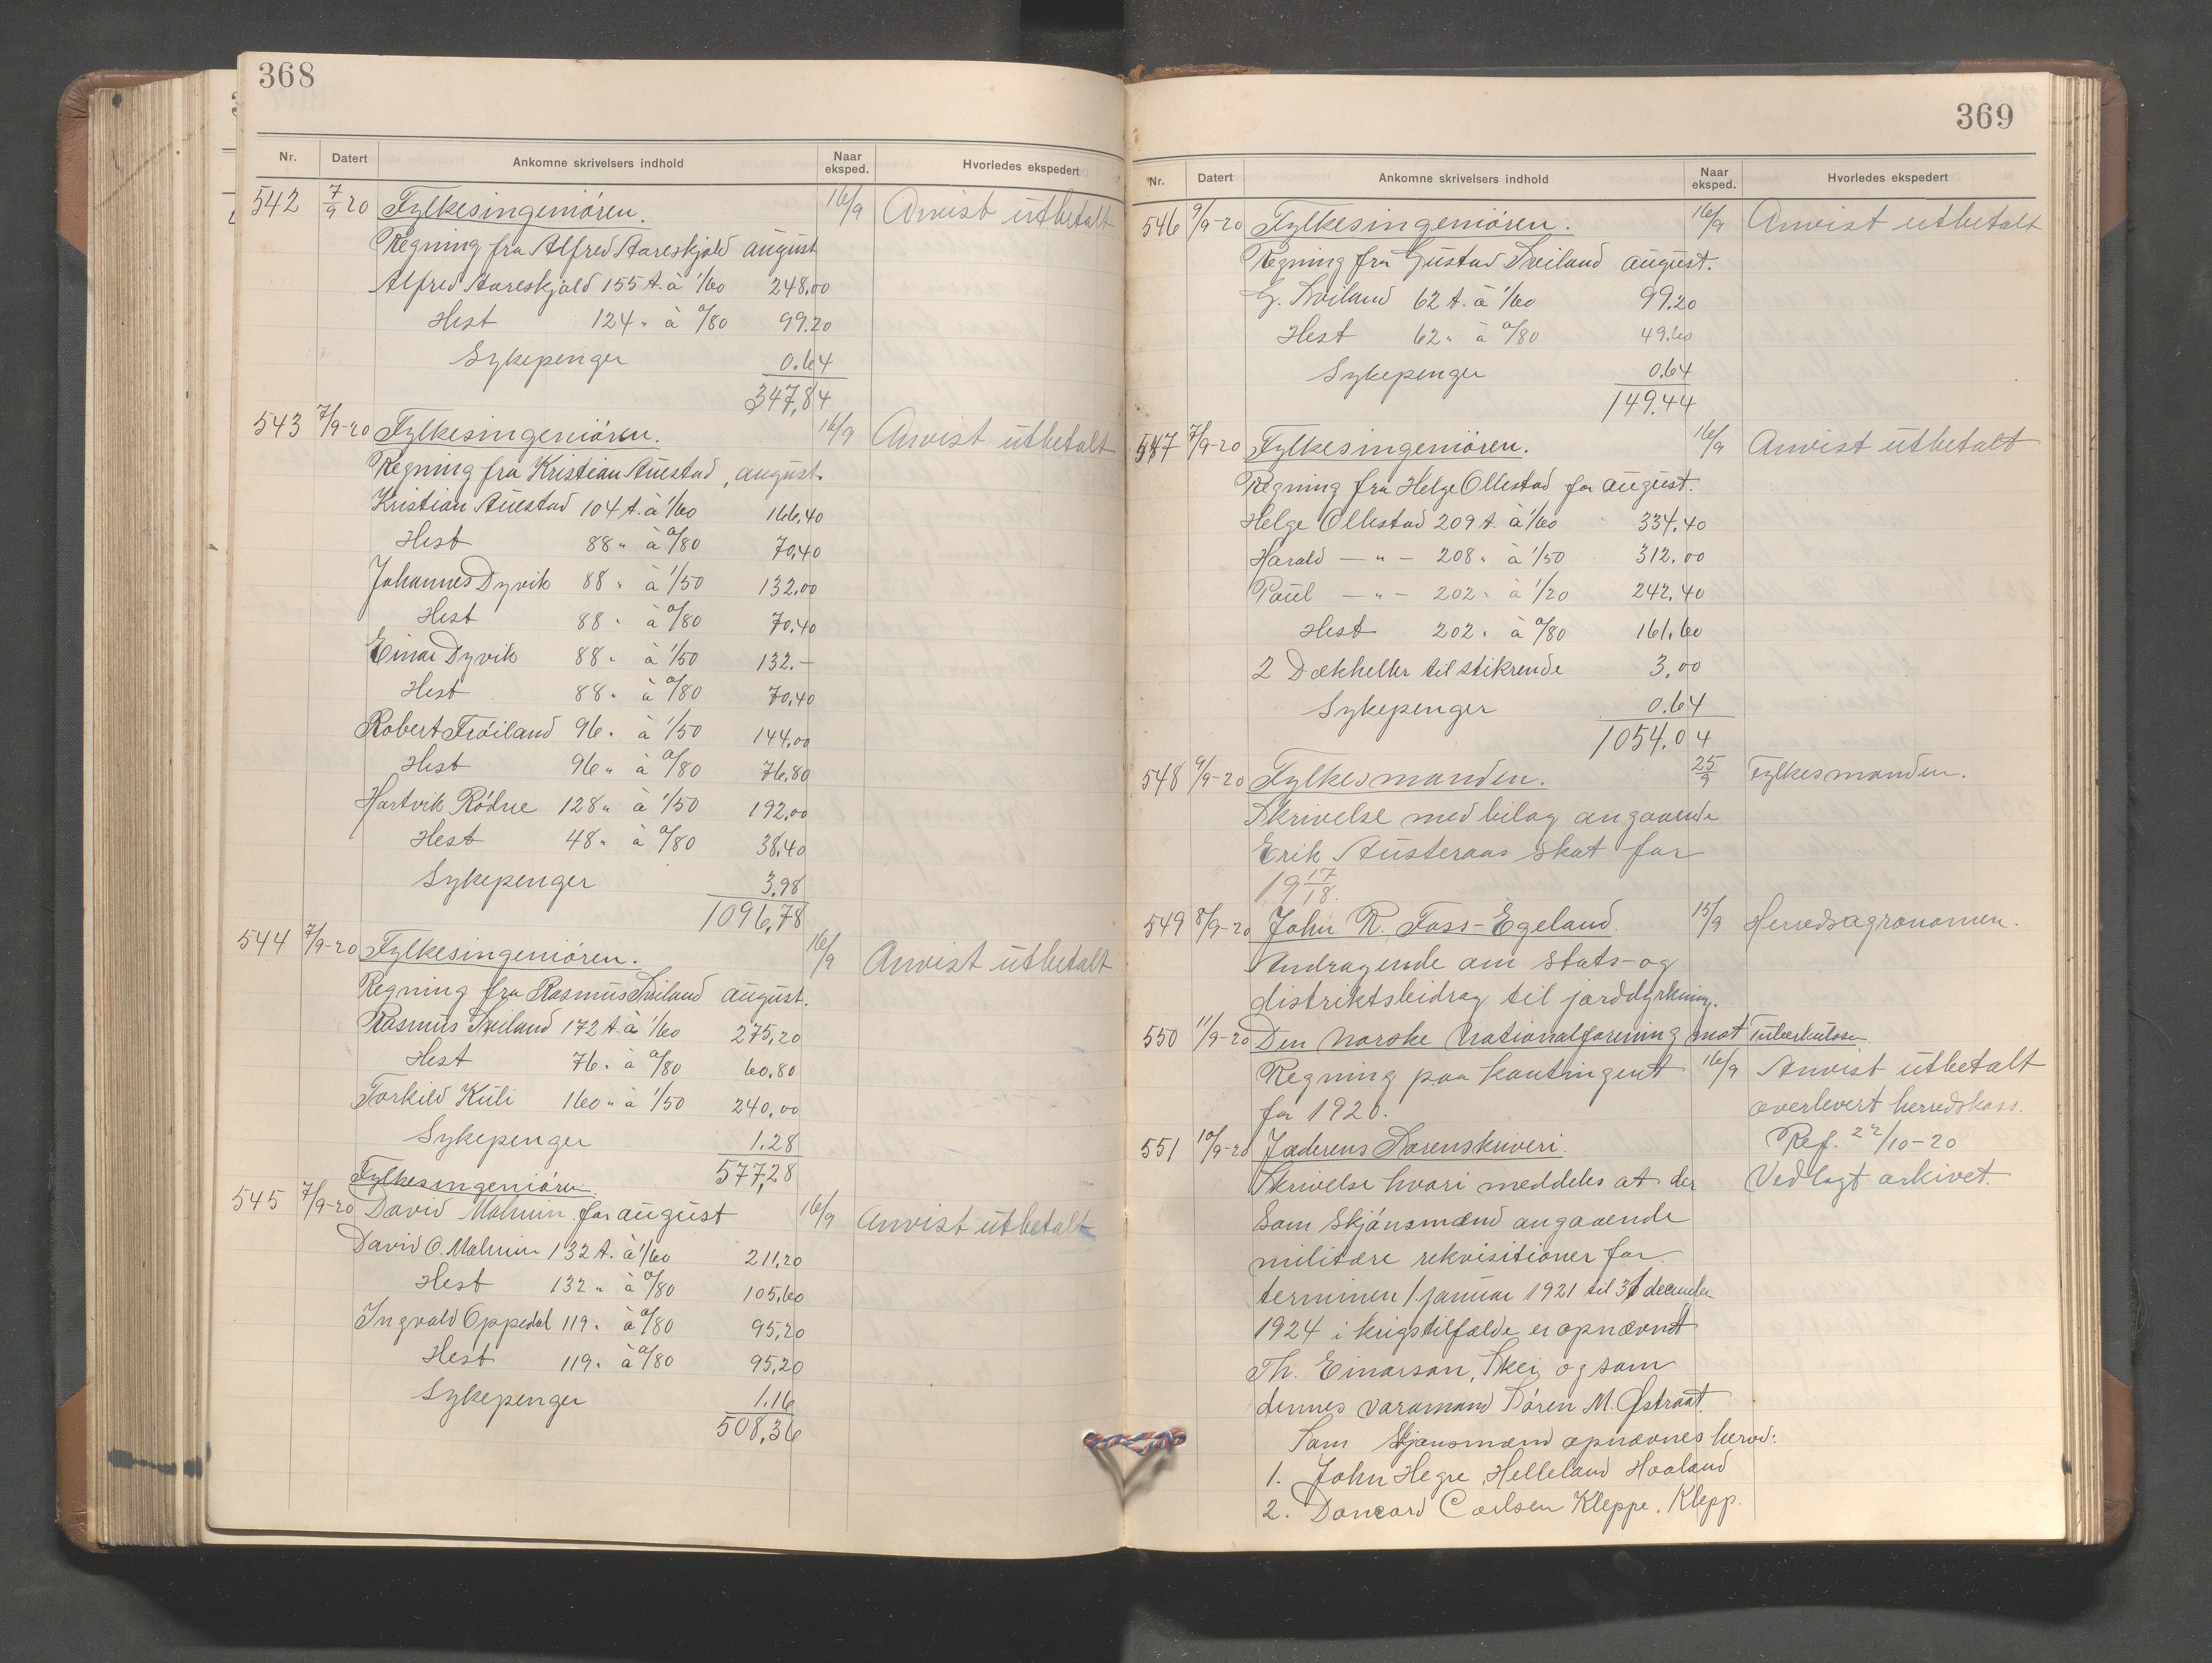 368
Nr. Datert Ankomne skrivelsers indhold Naar eksped. Hvorledes ekspedert
542 7/9 20 Fylkesingeniören. 16/9 Anvist utbetalt
Regning fra Alfred Aareskjold august
Alfred Aareskjold 155 t. à 1/60 248,00
Hest 124 " à 0/80 99.20
Sykepenger 0.64
347,84
543 7/9-20 Fylkesingeniören. 16/9 Anvist utbetalt
Regning fra Kristian Auestad, august.
Kristian Auestad 104 t. à 1/60 166,40
Hest 88 " à 0/80 70,40
Johannes Dyvik 88 " à 1/50 132,00
Hest 88 " à 0/80 70,40
Einar Dyvik 88 " à 1/50 132.-
Hest 88 " à 0/80 70,40
Robert Fröiland 96 " à 1/50 144,00
Hest 96 " à 0/80 76,80
Hartvik Rödne 128 " à 1/50 192,00
Hest 48 " à 0/80 38,40
Sykepenger 3,98
1096,78
544 7/9-20 Fylkesingeniören. 16/9 Anvist utbetalt
Regning fra Rasmus Sviland august.
Rasmus Sviland 172 t. à 1/60 275,20
Hest 76 " à 0/80 60,80
Torkild Kuli 160 " à 1/50 240,00
Sykepenger 1.28
577,28
Fylkesingeniören.
545 7/9-20 David Malmin for august 16/9 Anvist utbetalt
David O. Malmin 132 t. à 1/60 211,20
Hest 132 " à 0/80 105,60
Ingvald Oppedal 119 " à 0/80 95,20
Hest 119 " à 0/80 95,20
Sykepenger 1.16
508,36
369
Nr. Datert Ankomne skrivelsers indhold Naar eksped. Hvorledes ekspedert
546 9/9-20 Fylkesingeniören. 16/9 Anvist utbetalt
Regning fra Gustav Sviland august.
G. Sviland 62 t. à 1/60 99.20
Hest 62 " à 0/80 49.60
Sykepenger 0.64
149.44
547 7/9-20 Fylkesingeniören. 16/9 Anvist utbetalt
Regning fra Helge Ollestad for august.
Helge Ollestad 209 t. à 1/60 334,40
Harald — " — 208 " à 1/50 312.00
Paul — " — 202 " à 1/20 242,40
Hest 202 " à 0/80 161,60
2 Dækheller til stikrende 3,00
Sykepenger 0.64
1054.04
548 9/9-20 Fylkesmanden. 25/9 Fylkesmanden.
Skrivelse med bilag angaaende
Erik Austeraas skat for
19 17/18.
549 8/9-20 John R. Foss-Egeland. 15/9 Herredsagronomen.
Andragende om stats- og
distriktsbidrag til jorddyrkning.
550 11/9-20 Den norske nationalforening mot Tuberkulose
Regning paa kontingent 16/9 Anvist utbetalt
for 1920. overlevert herredskass.
551 10/9-20 Jæderens Sorenskriveri. Ref. 22/10-20
Skrivelse hvori meddeles at der Vedlagt arkivet.
som skjönsmænd angaaende
militære rekvisitioner for
terminen 1. januar 1921 til 31 december
1924 i krigstilfælde er opnævnt
Th. Einarson, Skei og som
dennes varamand Sören M. Østraat.
Som skjönsmænd opnævnes herved:
1. John Hegre, Helleland Haaland
2. Carlsen Kleppe, Klepp.